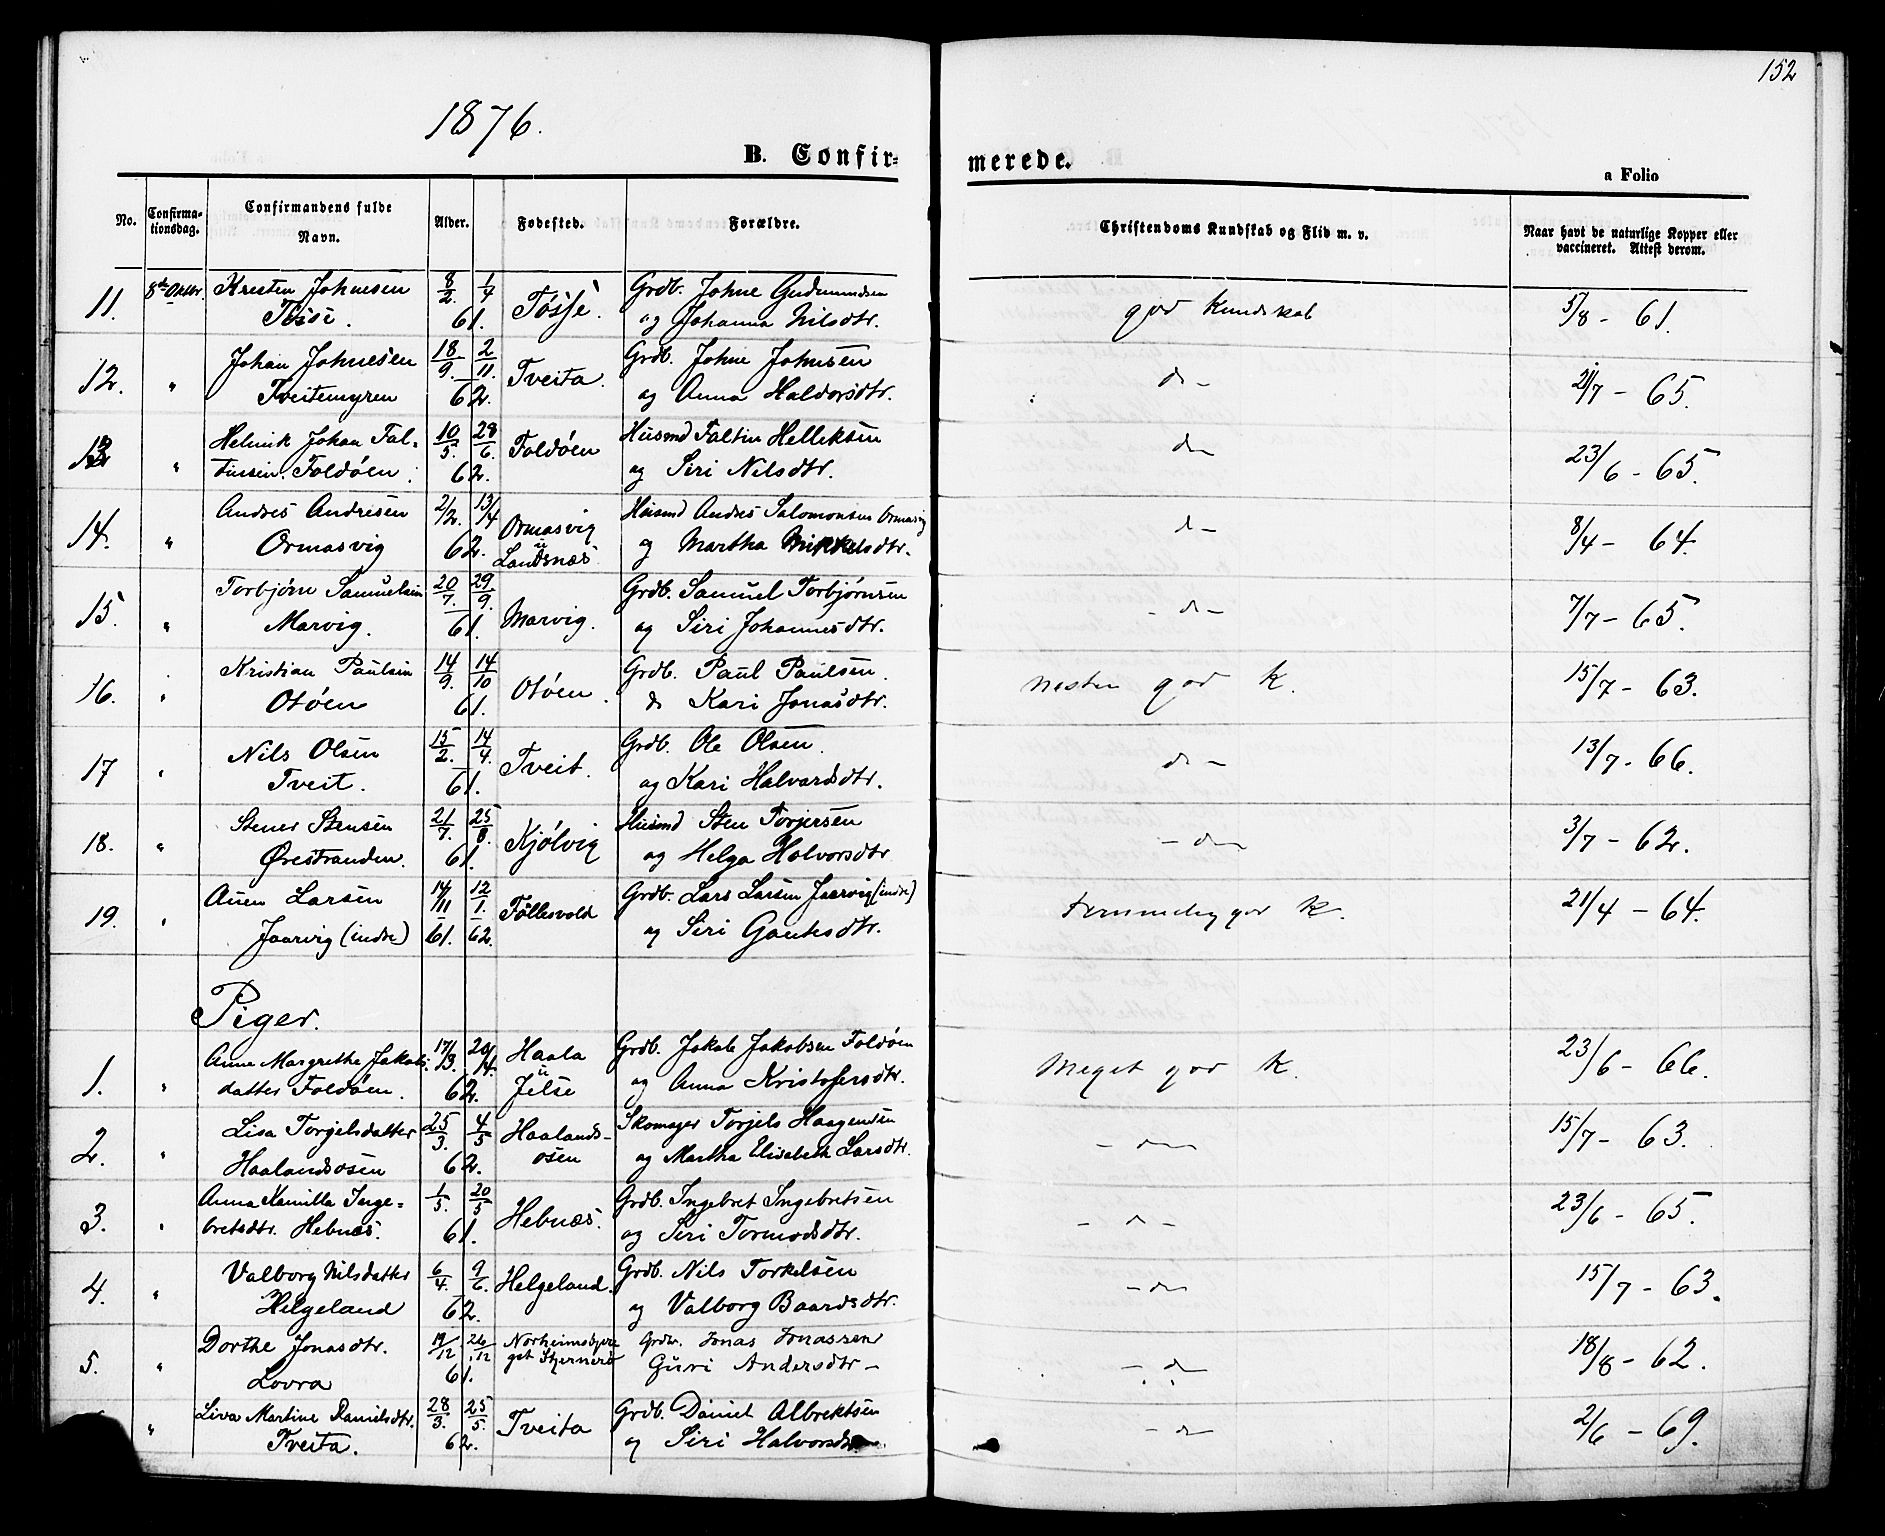 152
1876.
B. Confir-
merede.
a Folio
No.
Confirma-
tionsdag.
Confirmandens fulde
Navn.
Alder.
Fødested.
Forældre.
Christendoms Kundskab og Flid m. v.
Naar havt de naturlige Kopper eller
vaccineret. Attest derom.
11. 8de Oktbr. Kresten Johnesen 8/2. 1/4 Tøsse. Grdb. Johne Gudmundsen god Kundskab 5/8 - 61.
Tøsse. 61. og Johanna Nilsdtr.
12. " Johan Johnesen 18/9. 2/11. Tveita. Grdb. Johne Johnsen do - 21/7 - 65.
Tveitemyren 62. og Anna Haldorsdtr.
13 " Helmik Johan Fal- 10/5. 28/6. Foldøen Husmd Faltin Helleksen do 23/6 - 65.
tinsen Foldøen. 62. og Siri Nilsdtr.
14. " Andres Andresen 2/2. 13/4 Ormasvig Husmd Andres Salomonsen Ormasvig do - 8/4 - 64.
Ormasvig 62. Landsnæs og Martha Mikkelsdtr.
15. " Torbjørn Samuelsen 20/7. 29/9. Marvig. Grdb. Samuel Torbjørnsen - do - 7/7 - 65.
Marvig. 61. og Siri Johannesdtr.
16. " Kristian Paulsen 14/9. 14/10 Otøen. Grdb. Paul Paulsen. Næsten god K. 15/7 - 63.
Otøen 61. & Kari Jonasdtr.
17 " Nils Olsen 15/2. 14/4. Tveit. Grdb. Ole Olsen. do - 13/7 - 66.
Tveit. 61. og Kari Halvardsdtr.
18. " Stener Stensen 21/7. 25/8. Kjølvig Husmd Sten Torjersen - do 3/7 - 62.
Ørestranden. 61. og Helga Halvorsdtr
19. " Auen Larsen 14/11 12/1. Føllesvold Grdb. Lars Larsen Jaarvig (indre) Temmelig god K. 21/4 - 64.
Jaarvig (indre) 61. 62. og Siri Gautesdtr.
Piger.
1. " Anne Margrethe Jakobs- 17/3. 20/4. Haala Grdb. Jakob Jakobsen Foldøen Meget god K. 23/6 - 66.
datter Foldøen. 62. i Jelse og Anna Kristofersdtr.
2. " Lisa Torgelsdatter 25/3. 4/5 Haalands- Skomager Torjels Haagensen - do 15/7 - 63.
Haalandsosen 62. osen og Martha Elisebeth Larsdtr.
3. " Anna Kamilla Inge- 1/5. 20/5 Hebnæs. Grdb. Ingebret Ingebretsen - do - 23/6 - 65.
bretsdtr. Hebnæs. 61. og Siri Tormodsdtr.
4. " Valborg Nilsdatter 6/4. 9/6. Helgeland. Grdb. Nils Torkelsen - do 15/7 - 63.
Helgeland 62. og Valborg Baardsdtr.
5. " Dorthe Jonasdtr. 19/12 26/12 Grdbr. Jonas Jonassen - do 18/8 - 62.
Lovra 61. Guri Andersdtr -
" Liva Martine Danielsdtr. 28/3. 25/5. Tveita Grdb. Daniel Albrektsen - do 2/6 - 69.
Tveita. 62. og Siri Halvorsdtr.